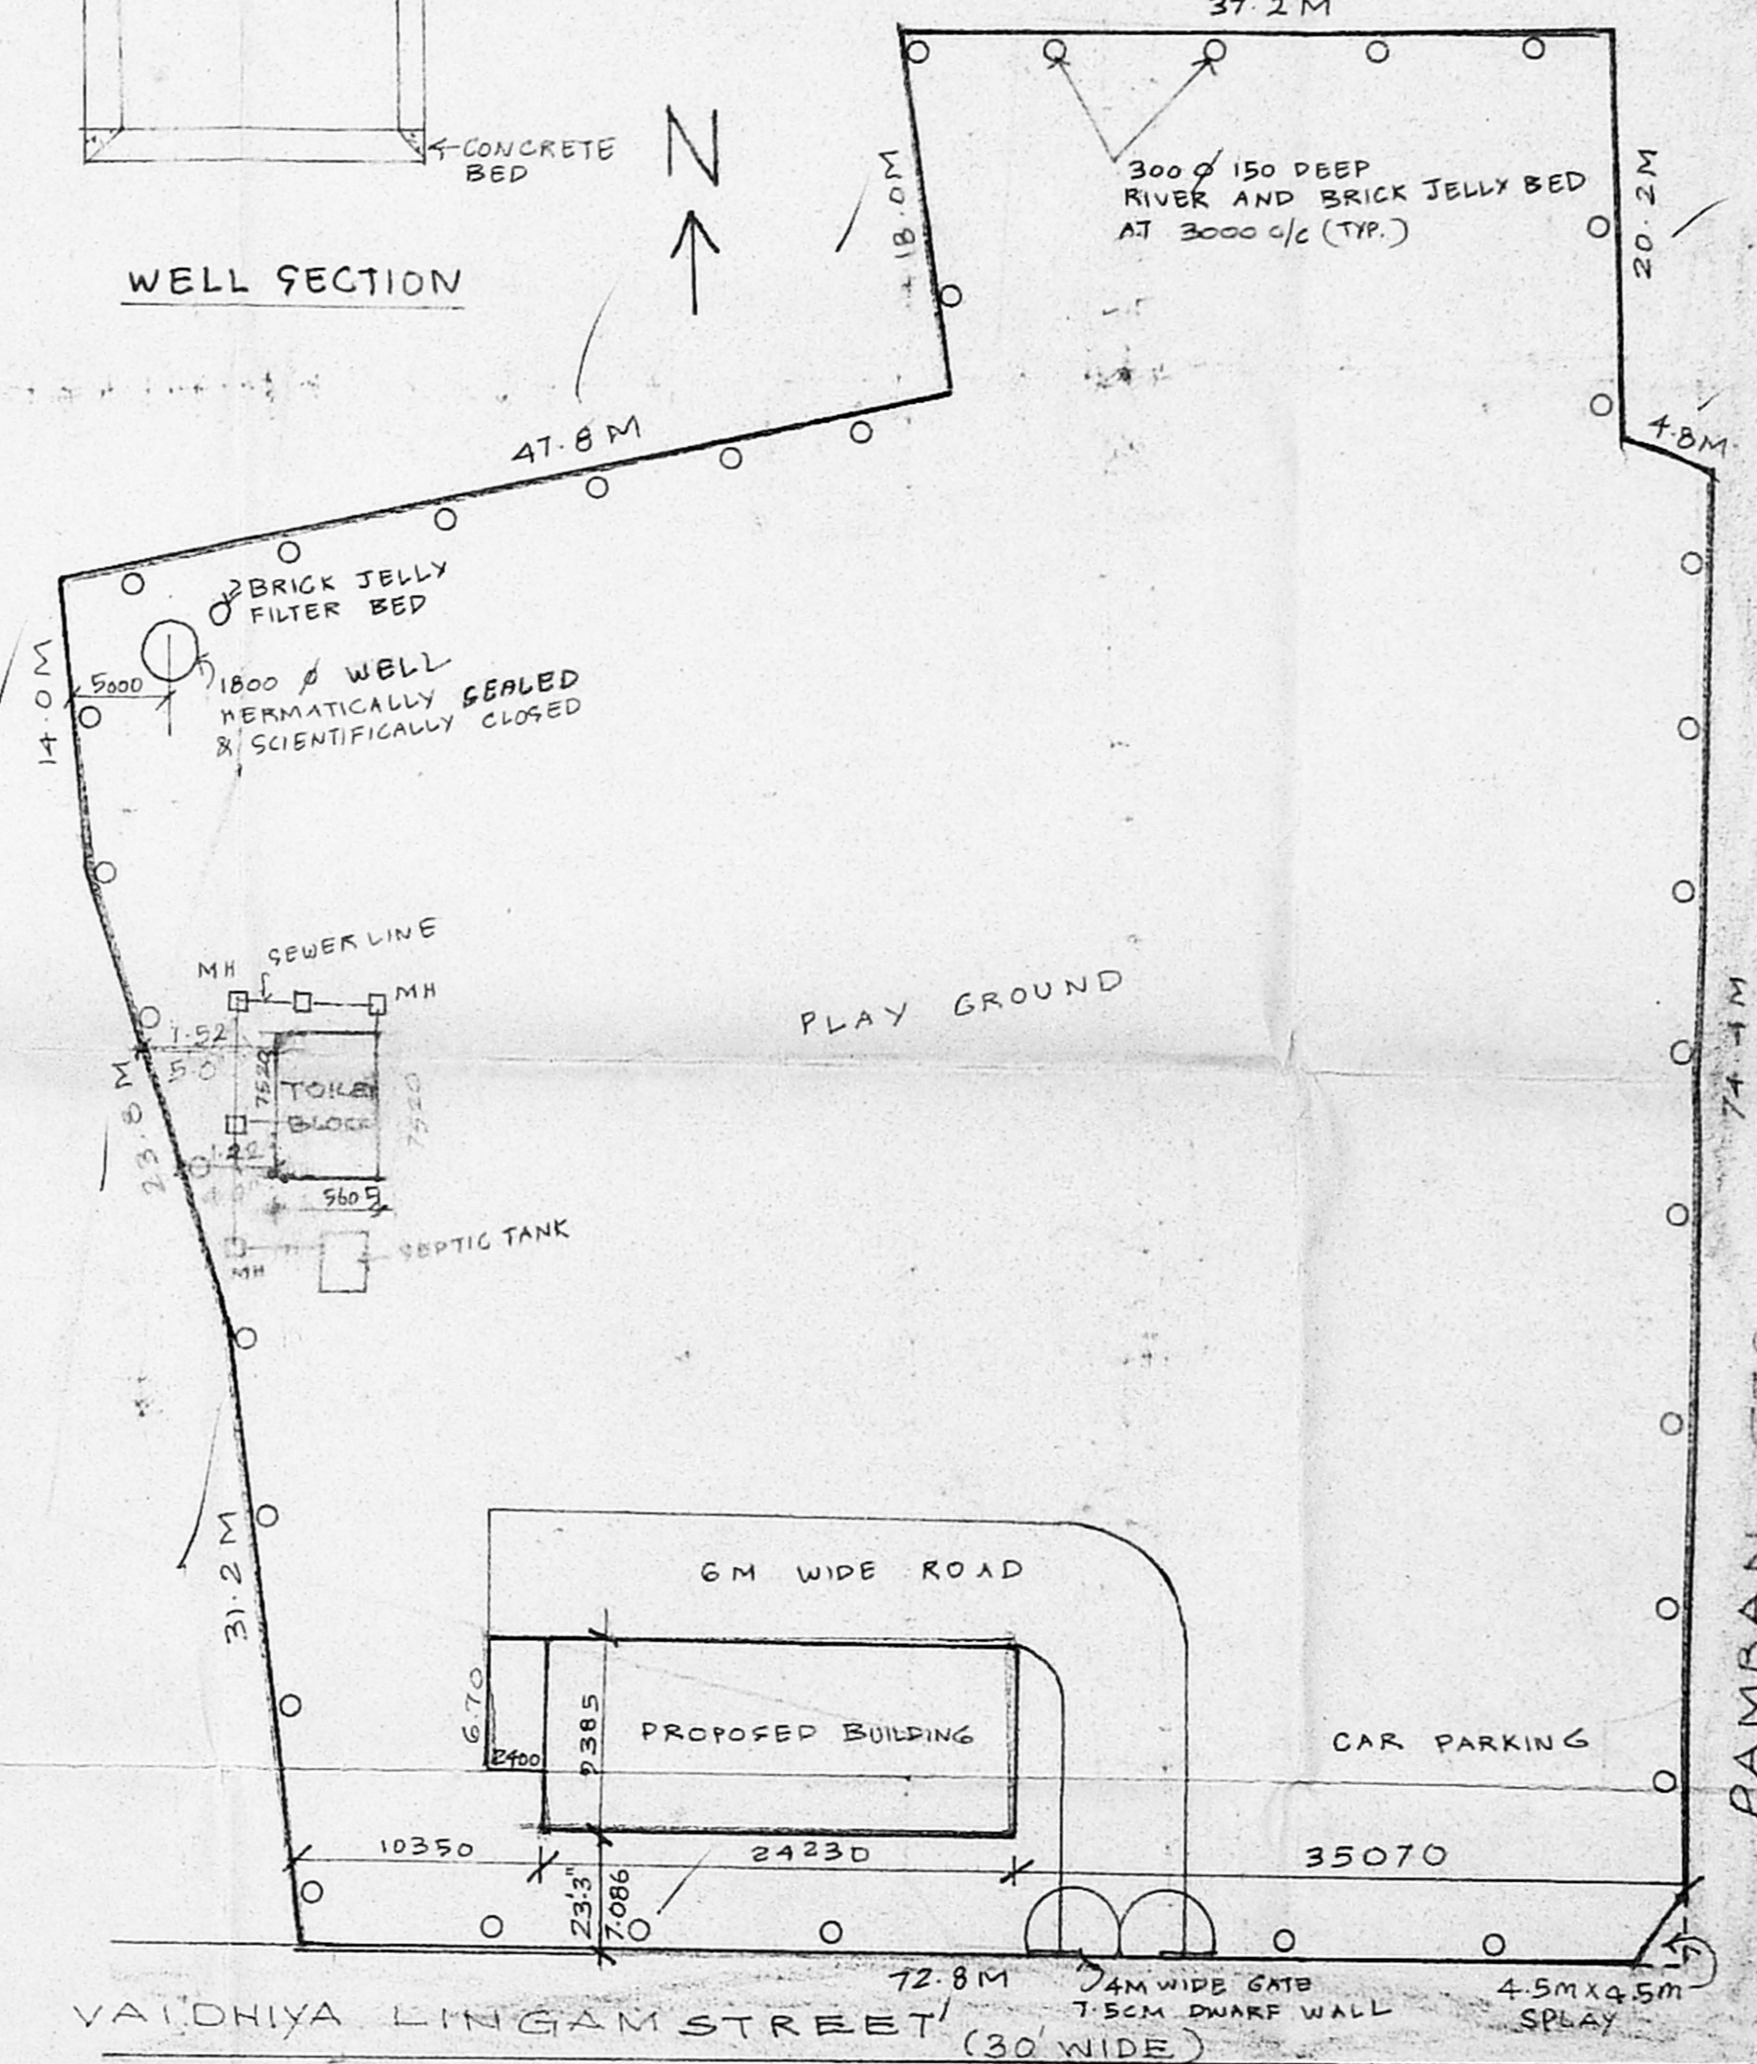 37.2 M
CONCRETE
BED
N
WELL SECTION
18.0M
300 ϕ 150 DEEP
RIVER AND BRICK JELLY BED
AT 3000 c/c (TYP.)
20.2 M
4.8M
47.8 M
BRICK JELLY
FILTER BED
14.0 M
5000
1800 ϕ WELL
HERMATICALLY SEALED
& SCIENTIFICALLY CLOSED
SEWER LINE
MH
MH
PLAY GROUND
1.52
5.0
7520
TOILET
BLOCK
7520
23.8 M
1.22
5605
SEPTIC TANK
MH
74.4M
6M WIDE ROAD
31.2 M
6.70
2400
9385
PROPOSED BUILDING
CAR PARKING
PAMBAN
10350
24230
35070
23'.3"
7.086
72.8M
4M WIDE GATE
7.5CM DWARF WALL
4.5m x 4.5m
SPLAY
VAIDHIYA LINGAM STREET
(30' WIDE)